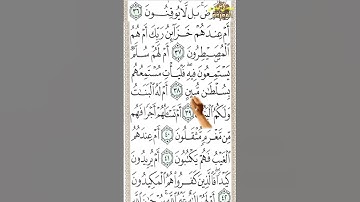 ضَ بَل لَّا يُوقِنُونَ ٣٦
أَمْ عِندَهُمْ خَزَآئِنُ رَبِّكَ أَمْ هُمُ
ٱلْمُصَۣيْطِرُونَ ٣٧ أَمْ لَهُمْ سُلَّمٌ
يَسْتَمِعُونَ فِيهِ فَلْيَأْتِ مُسْتَمِعُهُم
بِسُلْطَٰنٍ مُّبِينٍ ٣٨ أَمْ لَهُ ٱلْبَنَٰتُ
وَلَكُمُ ٣٩ أَمْ تَسْـَٔلُهُمْ أَجْرًا فَهُم
مِّن مَّغْرَمٍ مُّثْقَلُونَ ٤٠ أَمْ عِندَهُمُ
ٱلْغَيْبُ فَهُمْ يَكْتُبُونَ ٤١ أَمْ يُرِيدُونَ
كَيْدًا فَٱلَّذِينَ كَفَرُوا۟ هُمُ ٱلْمَكِيدُونَ
٤٢ أَمْ لَهُمْ إِلَٰهٌ غَيْرُ ٱللَّهِ سُبْحَٰنَ ٱللَّهِ